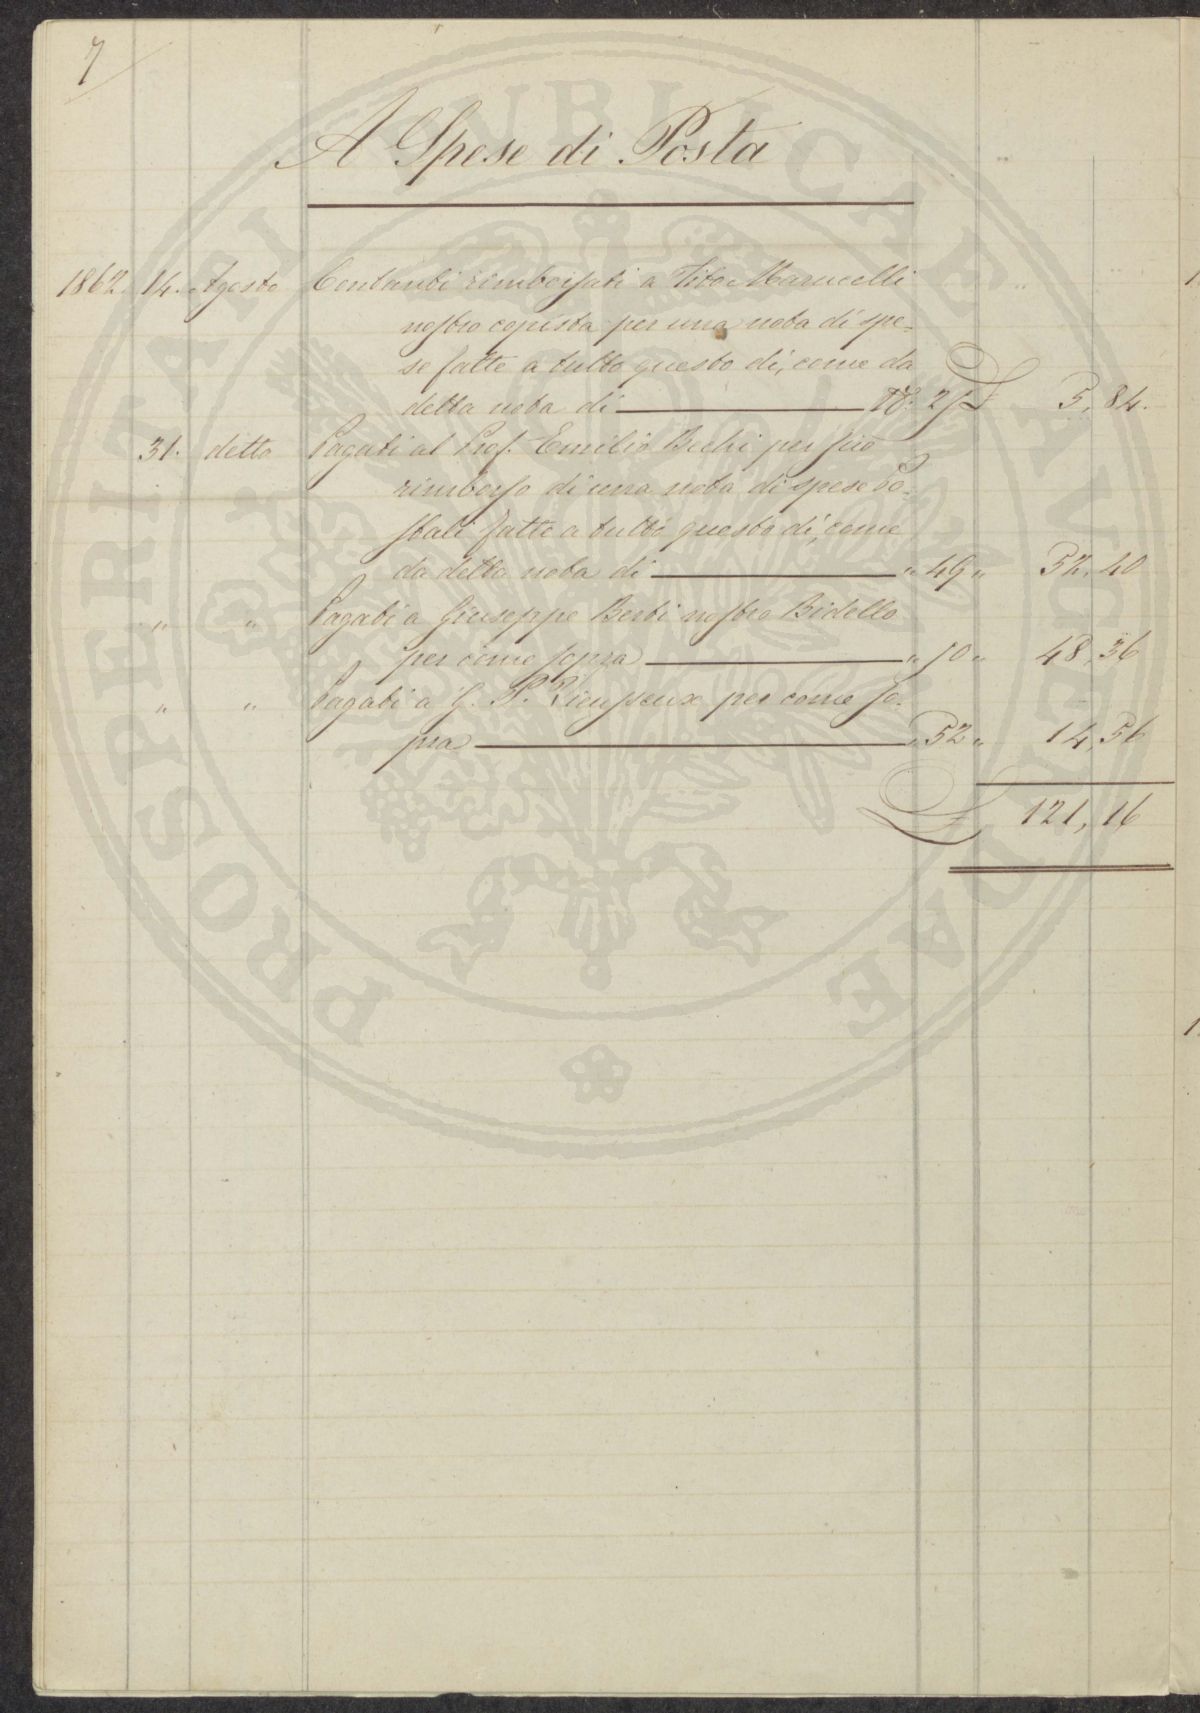 7
A Spese di Posta
1862. 14. Agosto Contanti rimborsati a Tito Marucelli
nostro copista per una nota di spe-
se fatte a tutto questo dì, come da
detta nota di N.° 2 £ 5, 84.
31. detto Pagati al Prof. Emilio Bechi per suo
rimborso di una nota di spese Po-
stali fatte a tutto questo dì, come
da detta nota di " 49 " 52, 40
" " Pagati a Giuseppe Berti nostro Bidello
per come sopra " 50 " 48, 36
" " Pagati a G. P. Vieusseux per come so-
pra " 52 " 14, 56
£ 121, 16
PROSPERITATI PUBLICAE AUGENDAE